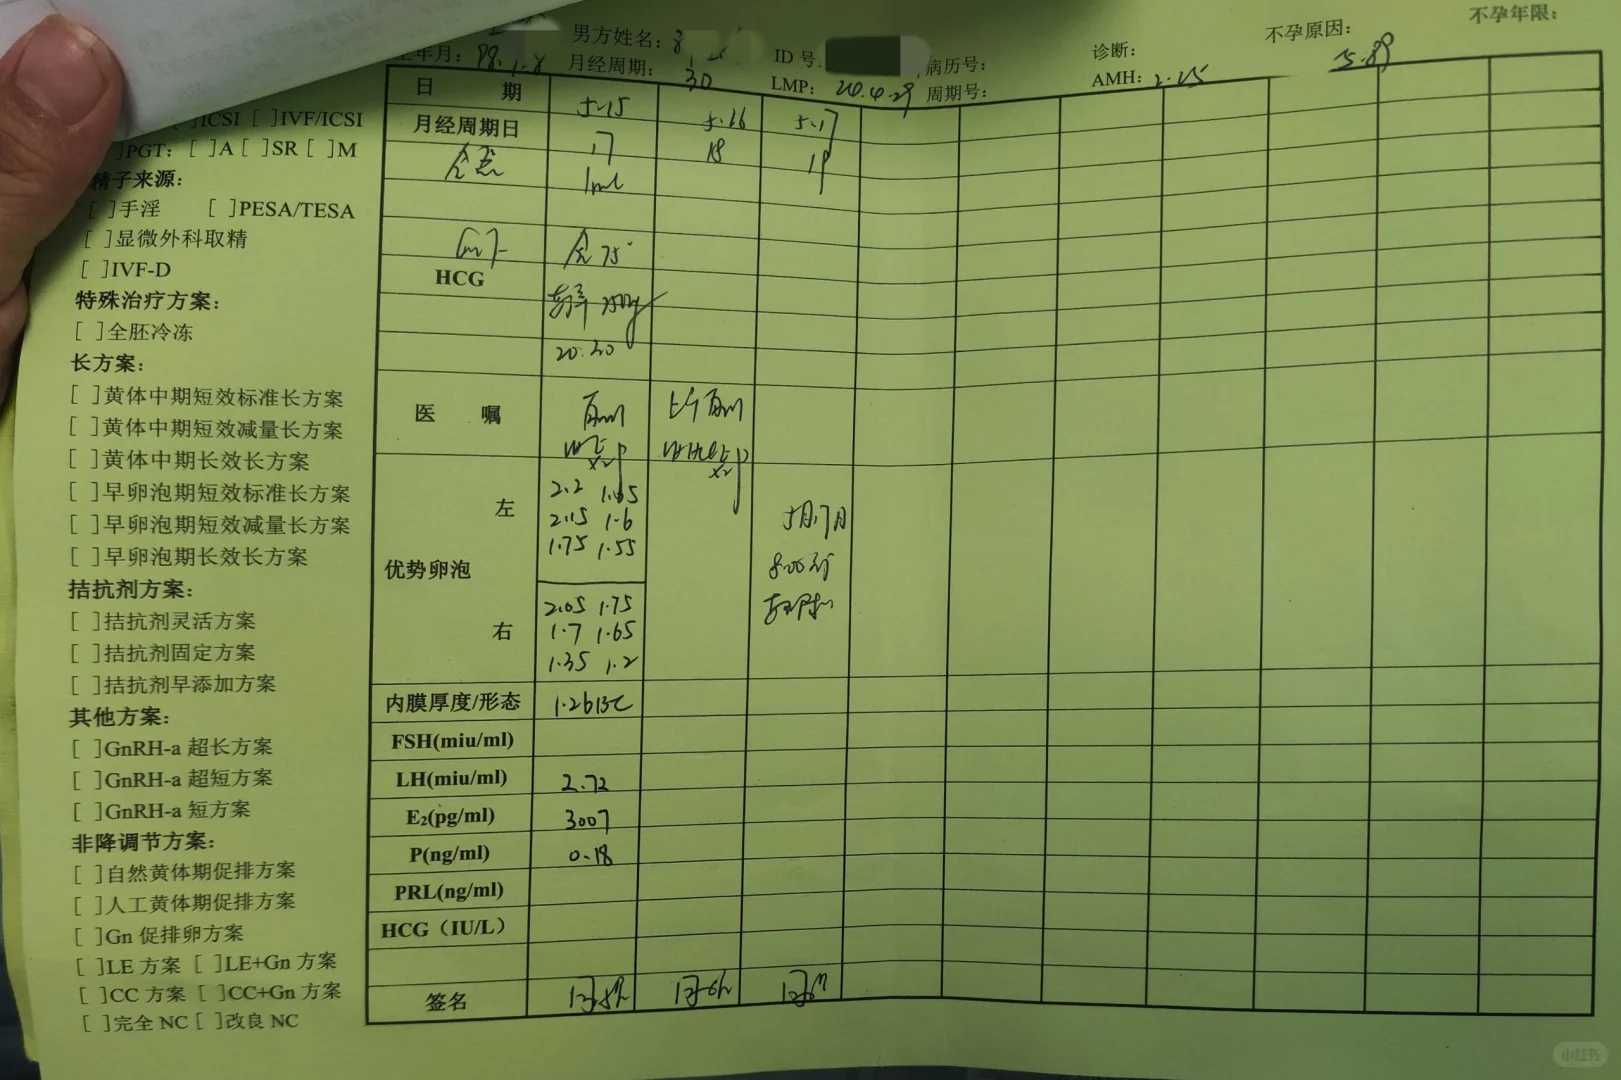 男方姓名：
ID 号
诊断：
不孕原因：
不孕年限：
年月：98.1.8
月经周期：30
LMP：
病历号：
周期号：
AMH：2.45
5.89
[ ]ICSI [ ]IVF/ICSI
]PGT：[ ]A [ ]SR [ ]M
精子来源：
[ ]手淫 [ ]PESA/TESA
[ ]显微外科取精
[ ]IVF-D
特殊治疗方案：
[ ]全胚冷冻
长方案：
[ ]黄体中期短效标准长方案
[ ]黄体中期短效减量长方案
[ ]黄体中期长效长方案
[ ]早卵泡期短效标准长方案
[ ]早卵泡期短效减量长方案
[ ]早卵泡期长效长方案
拮抗剂方案：
[ ]拮抗剂灵活方案
[ ]拮抗剂固定方案
[ ]拮抗剂早添加方案
其他方案：
[ ]GnRH-a 超长方案
[ ]GnRH-a 超短方案
[ ]GnRH-a 短方案
非降调节方案：
[ ]自然黄体期促排方案
[ ]人工黄体期促排方案
[ ]Gn 促排卵方案
[ ]LE 方案 [ ]LE+Gn 方案
[ ]CC 方案 [ ]CC+Gn 方案
[ ]完全 NC [ ]改良 NC
日 期 5.15 5.16 5.17
月经周期日 17 18 19
1ml
75
HCG
20:30
医 嘱
x2 x2
优势卵泡
左
2.2 1.65
2.15 1.6
1.75 1.55
右
2.05 1.75
1.7 1.65
1.35 1.2
5月17日
8:00
内膜厚度/形态 1.26 B C
FSH(miu/ml)
LH(miu/ml) 2.72
E₂(pg/ml) 3007
P(ng/ml) 0.18
PRL(ng/ml)
HCG（IU/L）
签名
小红书